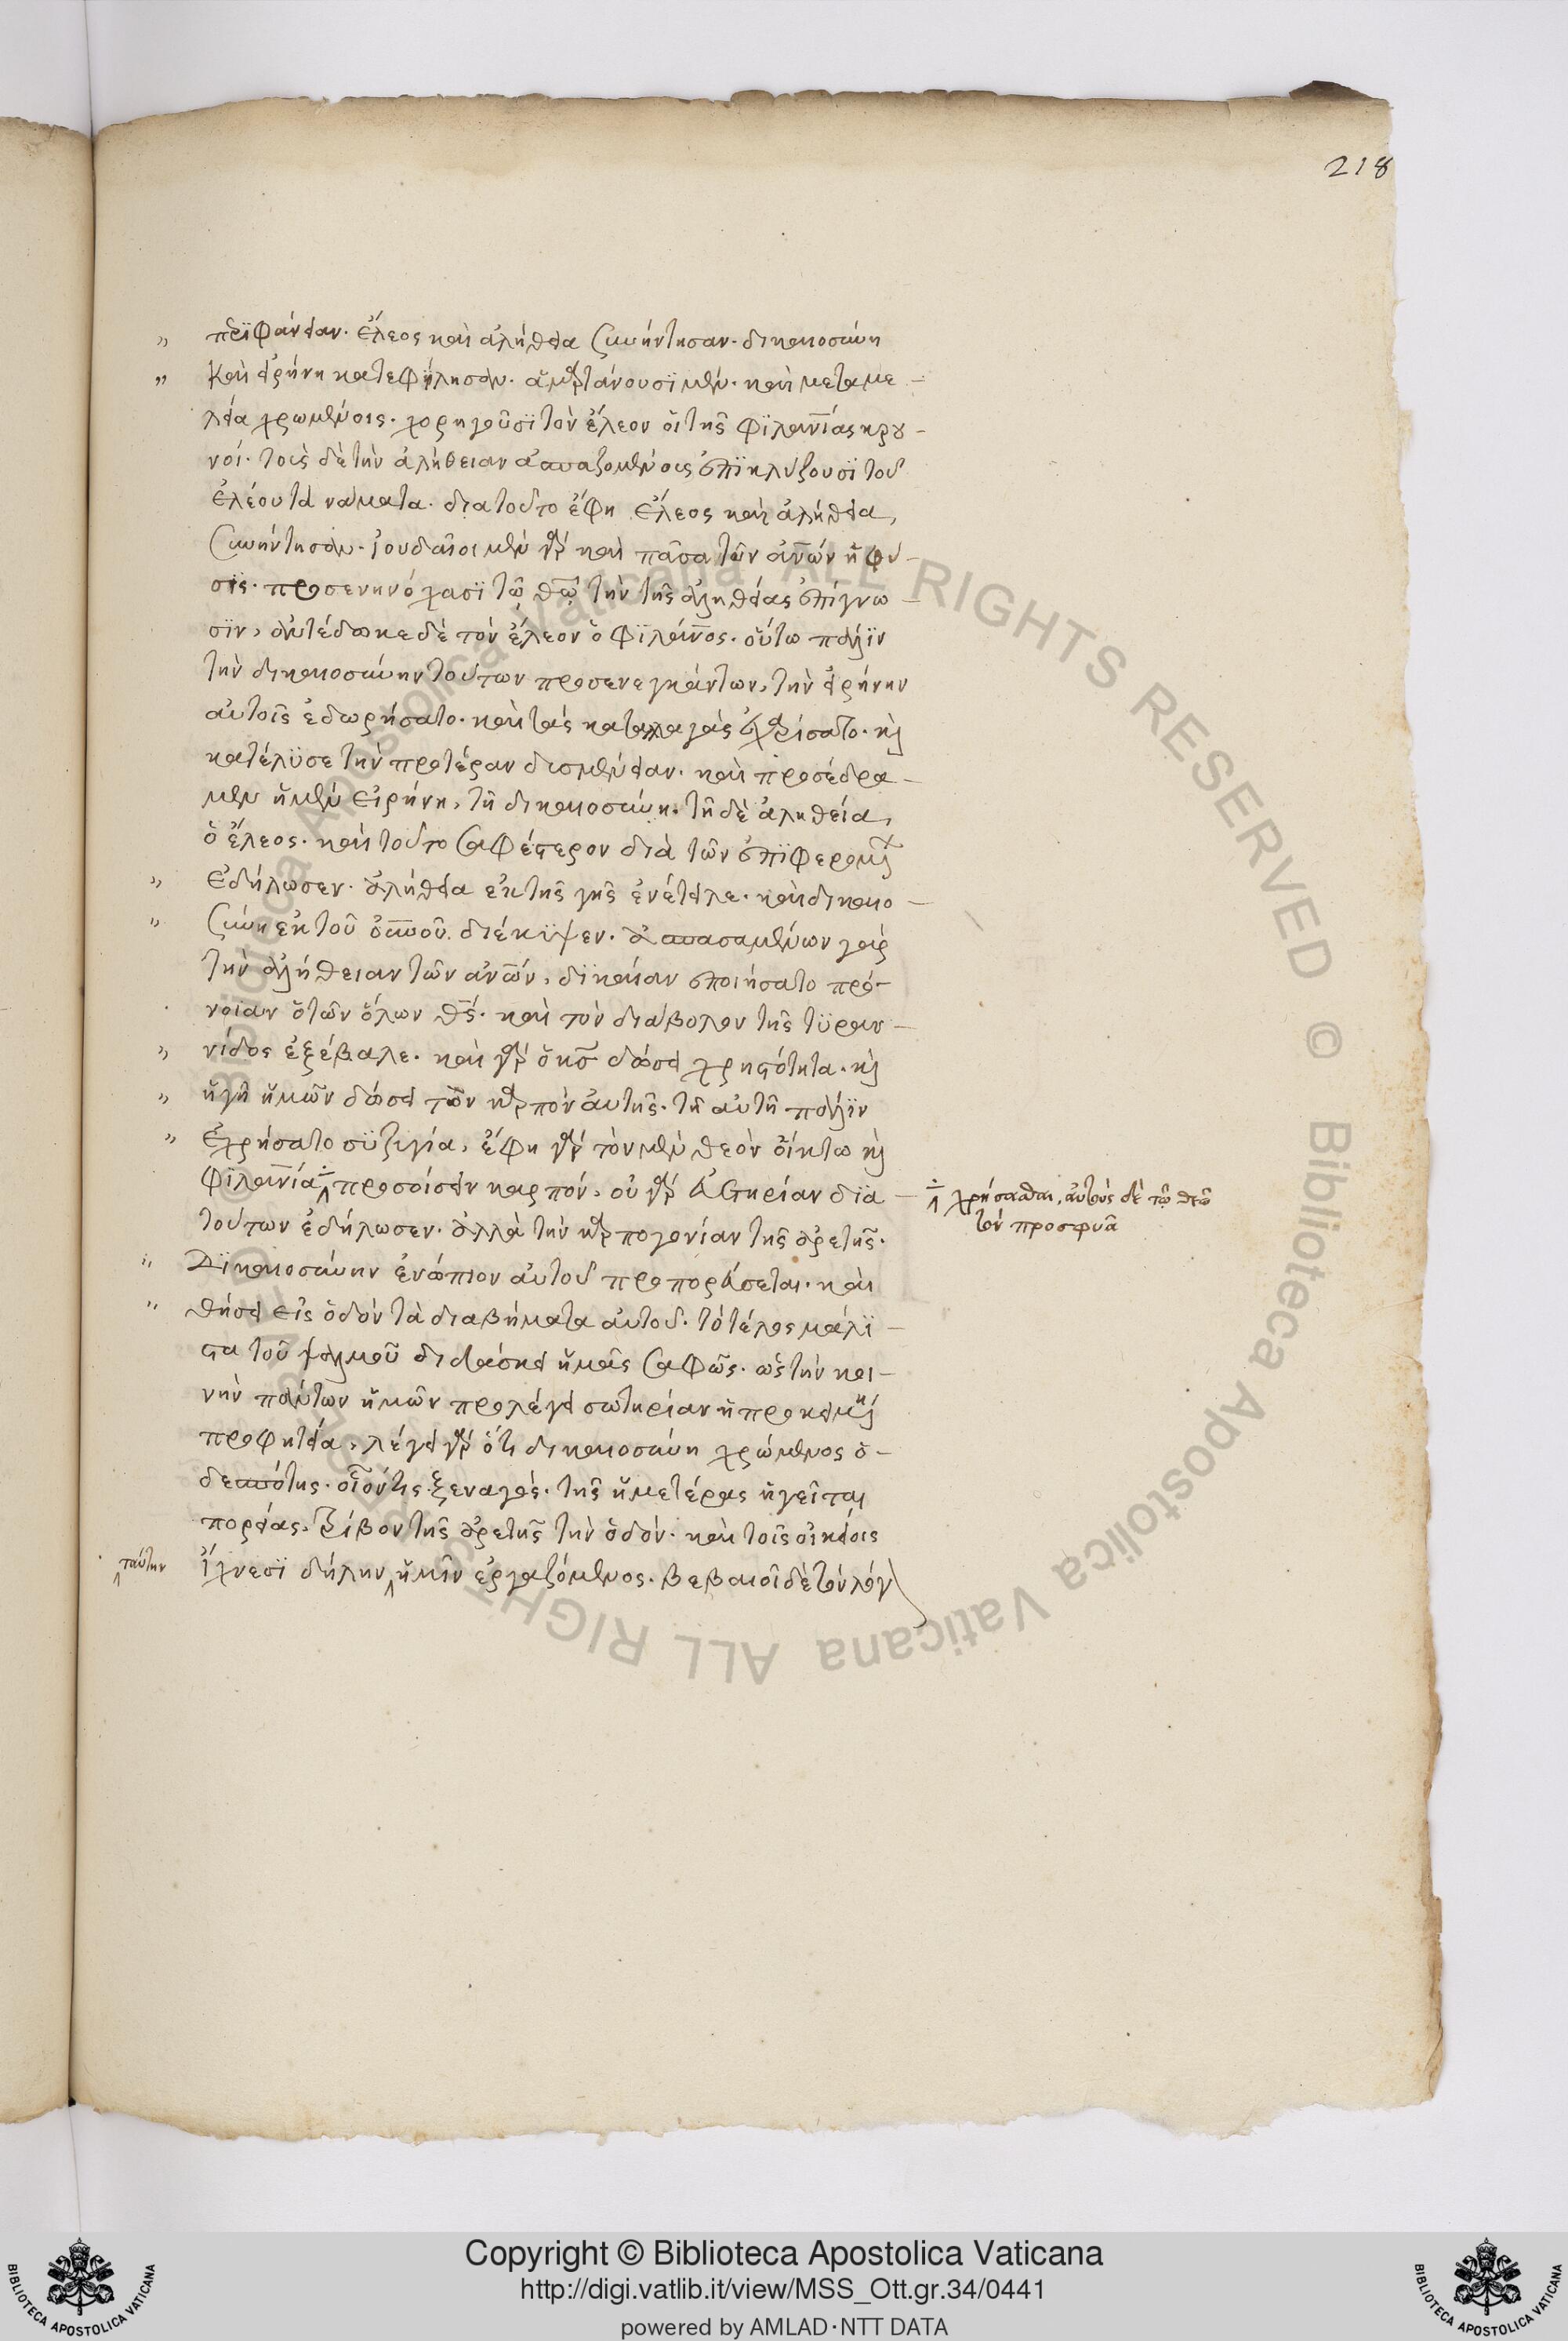 218
„ περιφάνειαν. ἔλεος καὶ ἀλήθεια συνήντησαν. δικαιοσύνη
„ καὶ εἰρήνη κατεφίλησαν. ἁμαρτάνουσι μὲν. καὶ μεταμε-
λεία χρωμένοις. χορηγοῦσι τὸν ἔλεον οἱ τῆς φιλανίας κρου-
νοί. τοῖς δὲ τὴν ἀλήθειαν ἀσπαζομένοις ἐπικλύζουσι τοῦ
ἐλέου τὰ νάματα. διατοῦτο ἔφη ἔλεος καὶ ἀλήθεια,
συνήντησαν. ἰουδαῖοι μὲν γὰρ καὶ πᾶσα τῶν ἀνῶν ἡ φύ-
σις. προσενηνόχασι τῷ θῷ τὴν τῆς ἀληθείας ἐπίγνω-
σιν, ἀντέδωκε δὲ τὸν ἔλεον ὁ φιλάνος. οὕτω πάλιν
τὴν δικαιοσύνην τούτων προσενεγκάντων, τὴν εἰρήνην
αὐτοῖς ἐδωρήσατο. καὶ τὰς καταλλαγὰς ἐχαρίσατο. κ
κατέλυσε τὴν προτέραν δυσμένειαν. καὶ προσέδρα-
μεν ἡ μὲν εἰρήνη, τῇ δικαιοσύνη. τῇ δὲ ἀληθεία,
ὁ ἔλεος. καὶ τοῦτο σαφέστερον διὰ τῶν ἐπιφερομ
„ ἐδήλωσεν. ἀλήθεια ἐκ τῆς γῆς ἀνέτειλε. καὶ δικαιο-
„ σύνη ἐκ τοῦ οὐνοῦ διέκυψεν. ἀσπασαμένων γὰρ
τὴν ἀλήθειαν τῶν ἀνῶν, δικαίαν ἐποιήσατο πρό-
νοιαν ὁ τῶν ὅλων θς. καὶ τὸν διάβολον τῆς τυραν-
„ νίδος ἐξέβαλε. καὶ γὰρ ὁ κς δώσει χρηστότητα. κ
„ ἡ γῆ ἡμῶν δώσει τὸν καρπὸν αὐτῆς. τῇ αὐτῇ πάλιν
„ ἐχρήσατο συζυγία, ἔφη γὰρ τὸν μὲν θεὸν οἴκτω κ
φιλανία προσοίσειν καρπόν, οὐ γὰρ εὐετηρίαν δια-
÷ χρήσασθαι, αὐτοὺς δὲ τῷ θεῷ
τὸν προσφυᾶ
τούτων ἐδήλωσεν. ἀλλὰ τὴν καρπογονίαν τῆς ἀρετῆς.
„ Δικαιοσύνην ἐνώπιον αὐτοῦ προπορεύσεται. καὶ
„ θήσει εἰς ὁδὸν τὰ διαβήματα αὐτοῦ. τὸ τέλος μάλι-
στα τοῦ ψαλμοῦ διδάσκει ἡμᾶς σαφῶς. ὡς τὴν κοι-
νὴν πάντων ἡμῶν προλέγει σωτηρίαν ἡ προκειμ
προφητεία, λέγει γὰρ ὅτι δικαιοσύνη χρώμενος ὁ-
δεσπότης. οἷόν τις ξεναγός. τῆς ἡμετέρας ἡγεῖται
πορείας. τρίβον τῆς ἀρετῆς τὴν ὁδόν. καὶ τοῖς οἰκείοις
ταύτην
ἴχνεσι δήλην ἡμῖν ἐργαζόμενος. βεβαιοῖ δὲ τὸν λόγ
Copyright © Biblioteca Apostolica Vaticana
http://digi.vatlib.it/view/MSS_Ott.gr.34/0441
powered by AMLAD·NTT DATA